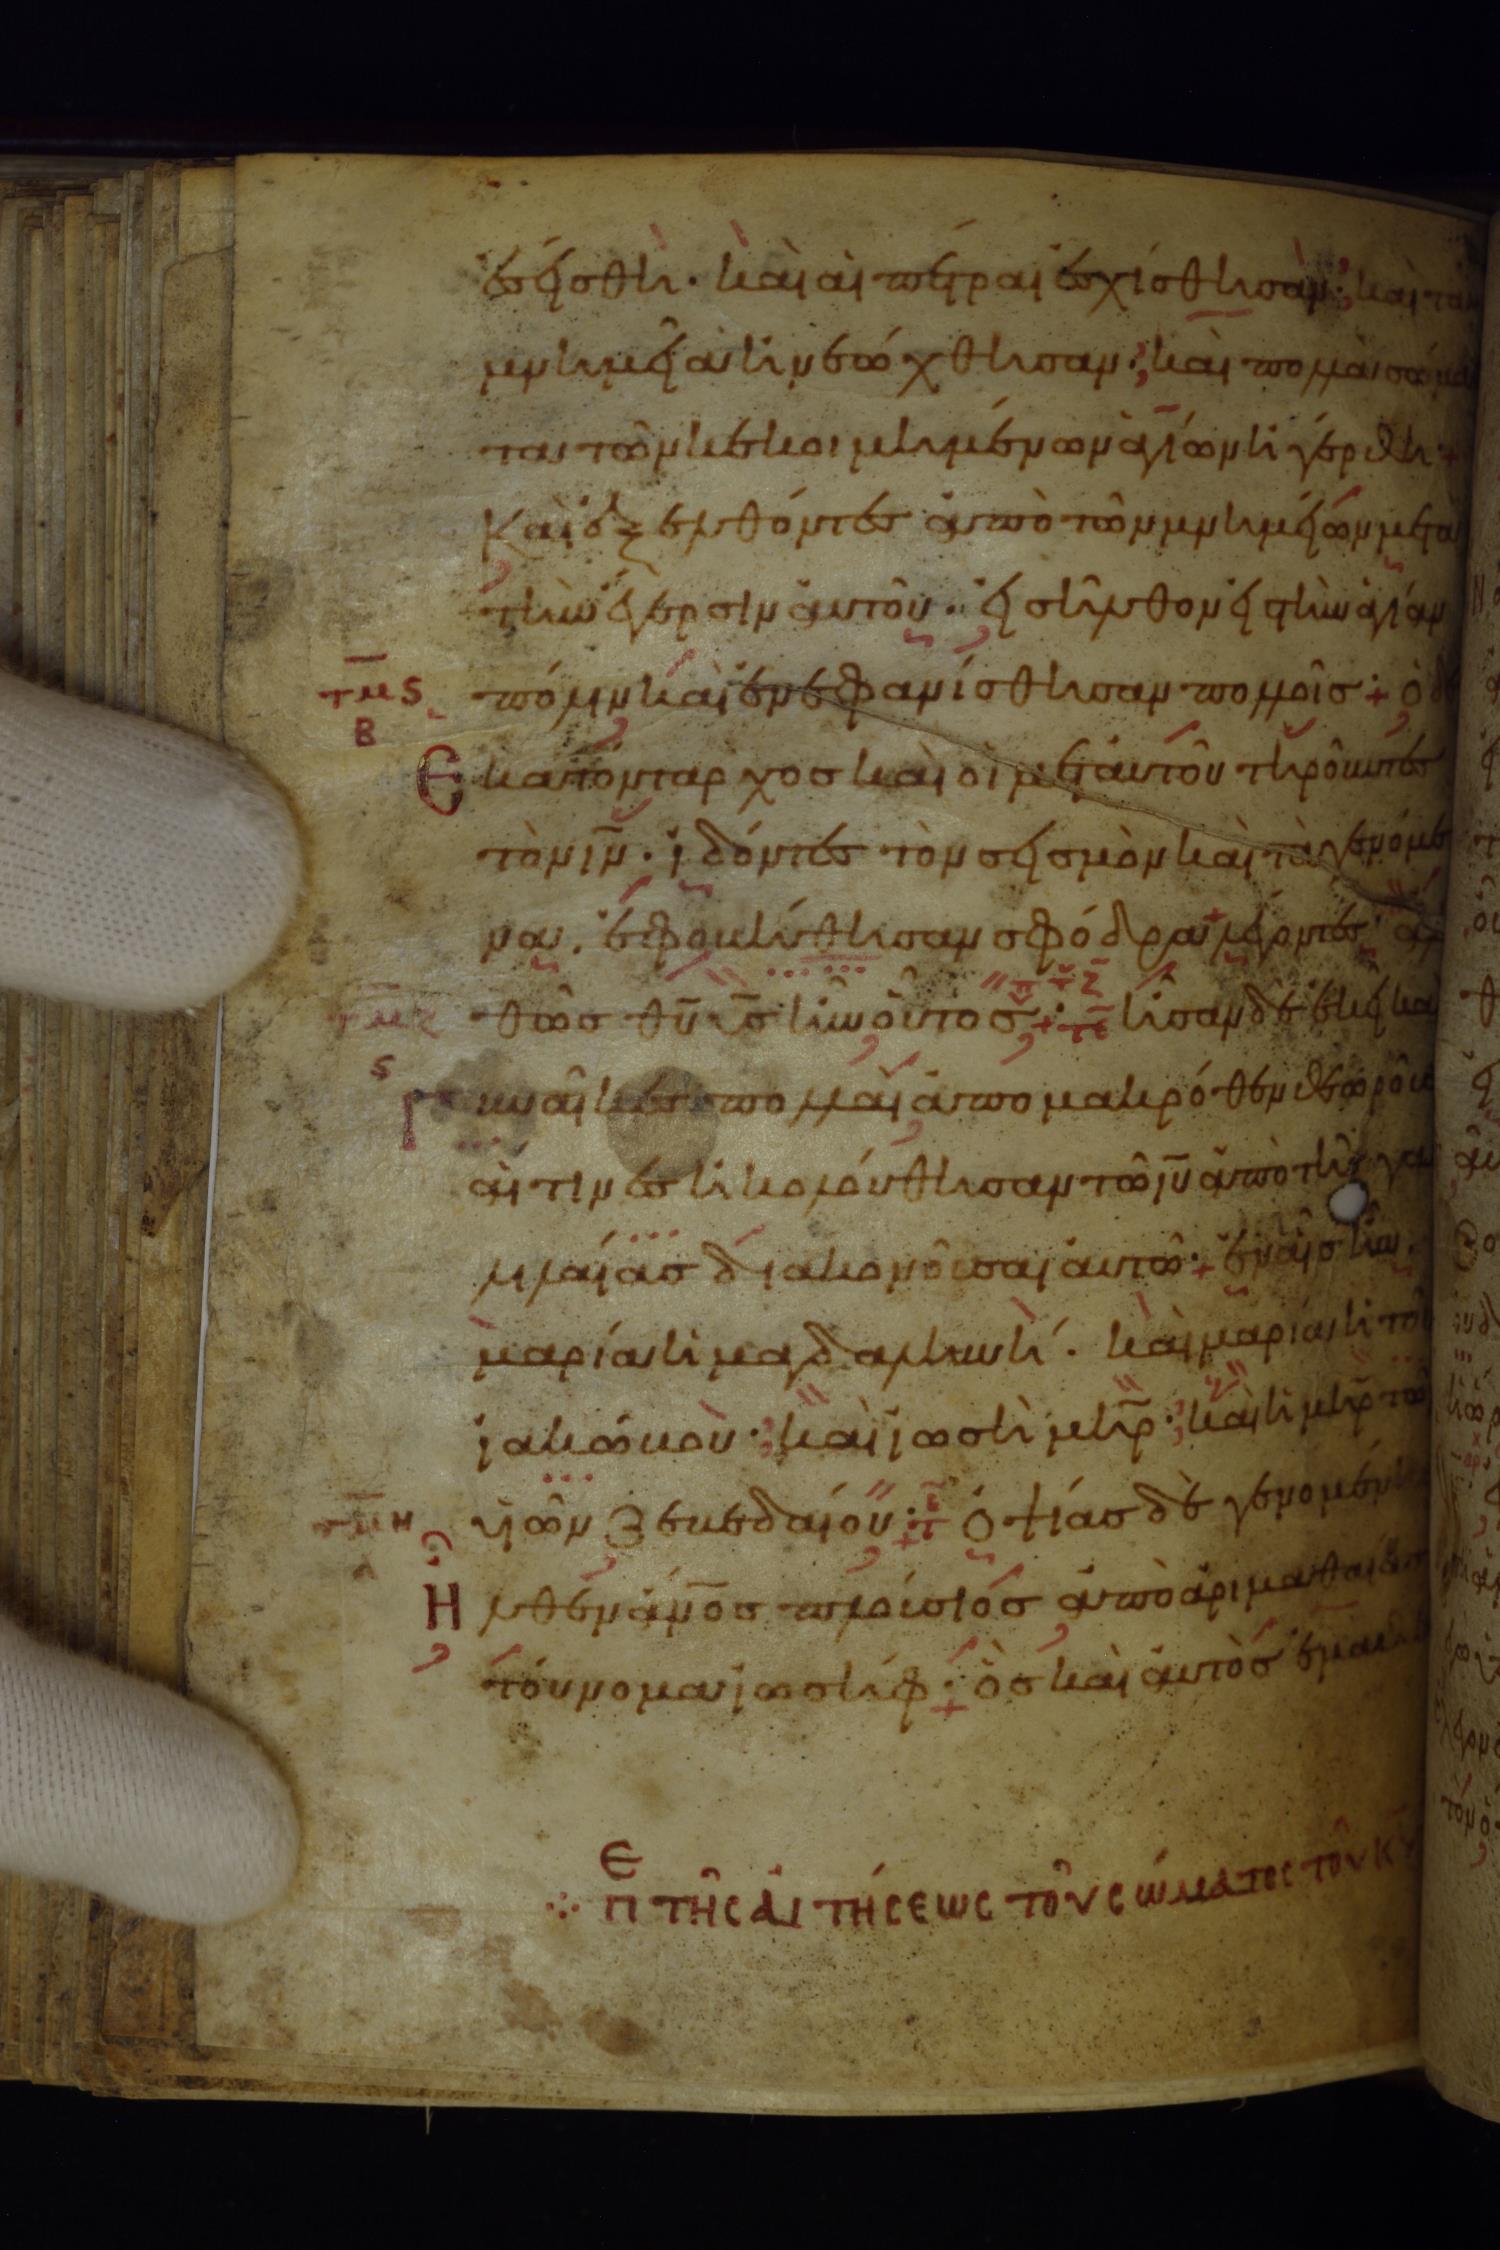 ἐσείσθη· καὶ αἱ πέτραι ἐσχίσθησαν· καὶ τὰ
μνημεῖα ἠνεώχθησαν· καὶ πολλὰ σώμα
τα τῶν κεκοιμημένων ἁγίων ἠγέρθη·
Καὶ ἐξελθόντες ἀπὸ τῶν μνημείων μετὰ
τὴν ἔγερσιν αὐτοῦ· εἰσῆλθον εἰς τὴν ἁγίαν
τμϛ πόλιν καὶ ἐνεφανίσθησαν πολλοῖς· ὁ δὲ
β
Ἑκατόνταρχος καὶ οἱ μετ' αὐτοῦ τηροῦντες
τὸν ιν̄· ἰδόντες τὸν σεισμὸν καὶ τὰ γενόμε
να. ἐφοβήθησαν σφόδρα λέγοντες· ἀλη
τμζ θῶς θῡ υσ̄ ἦν οὗτος· ἦσαν δὲ ἐκεῖ κα
ϛ
Γυναῖκες πολλαὶ ἀπὸ μακρόθεν θεωροῦσ
αἵτινες ἠκολούθησαν τῶ ιῡ ἀπὸ τῆς γα
λιλαίας διακονοῦσαι αὐτῶ· ἐν αἷς ἦν
μαρία ἡ μαγδαληνή· καὶ μαρία ἡ τοῦ
ἰακώβου· καὶ ἰωσὴ μηρ̄· καὶ ἡ μηρ̄ τῶν
τμη υἱῶν ζεβεδαίου· ὀψίας δὲ γενομένης
Ἦλθεν ἄνος̄ πλούσιος ἀπὸ ἀριμαθαίας
τοὔνομα ἰωσήφ· ὃς καὶ αὐτὸς ἐμαθή
ΕΠ ΤῆC ΑἰΤήCΕωC ΤΟῦ CώΜΑΤΟC ΤΟῦ ΚῩ